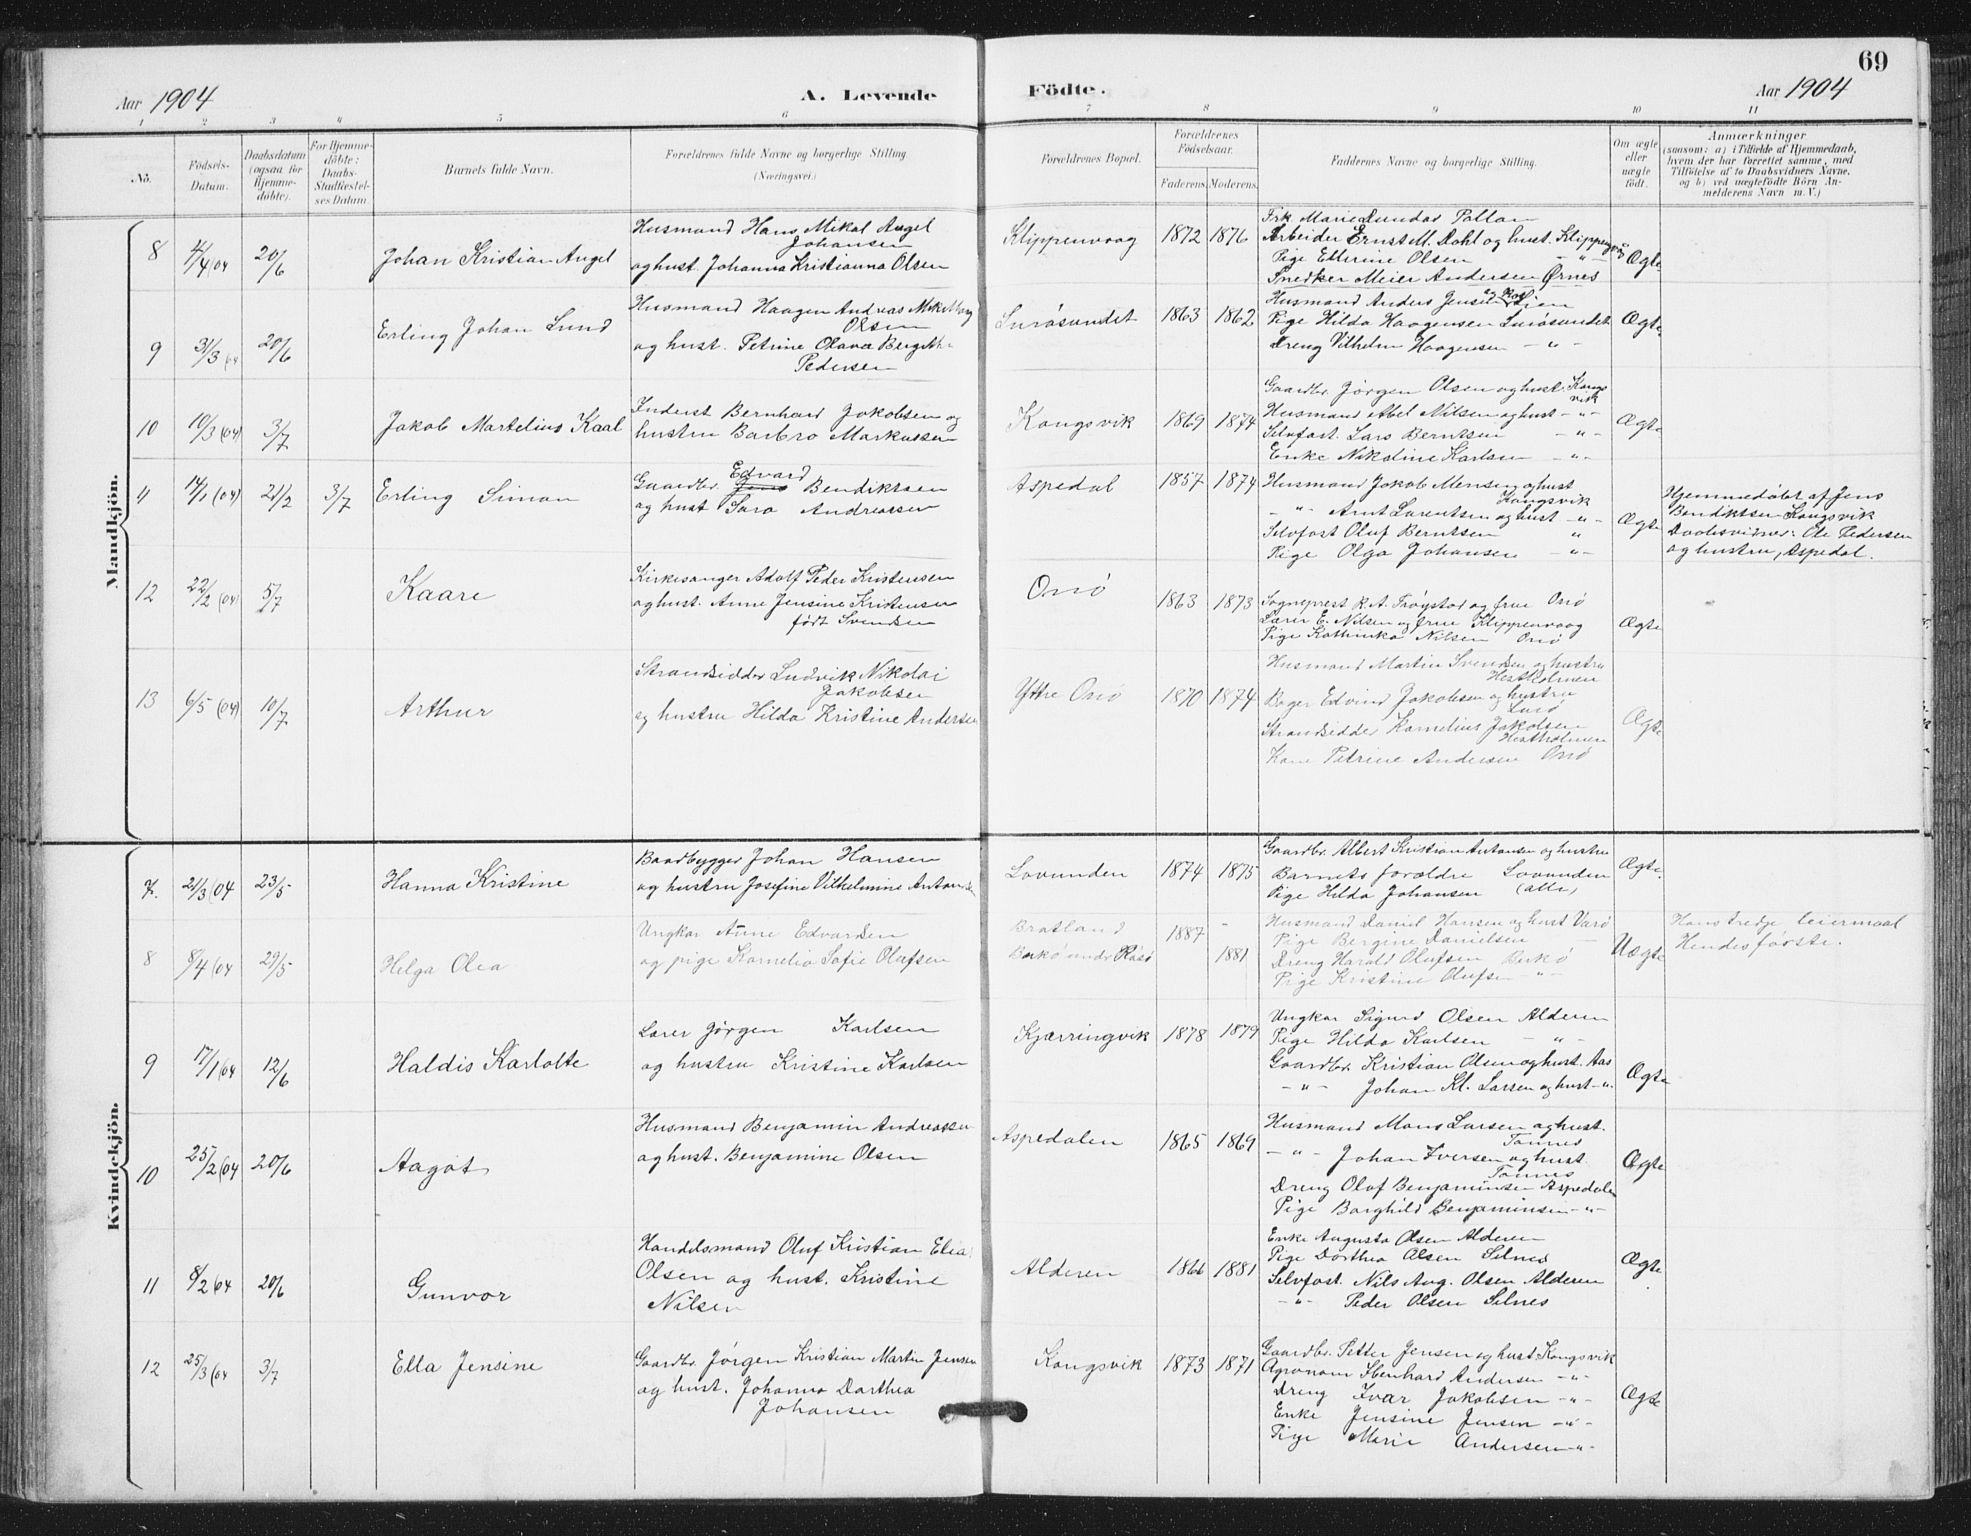 69
Aar 1904
A. Levende Födte.
Aar 1904
1 2 3 4 5 6 7 8 9 10 11
No.
Födsels-
Datum.
Daabsdatum
(ogsaa for
Hjemme-
döbte).
For Hjemme-
döbte:
Daabs-
Stadfæstel-
ses Datum.
Barnets fulde Navn.
Forældrenes fulde Navne og borgerlige Stilling.
(Næringsvei.)
Forældrenes Bopæl.
Forældrenes
Födselsaar.
Faderens. Moderens.
Faddernes Navne og borgerlige Stilling.
Om ægte
eller
uægte
födt.
Anmærkninger
(saasom: a) i Tilfælde af Hjemmedaab,
hvem der har forrettet samme, med
Tilföielse af to Daabsvidners Navne,
og b) ved uægtefödte Börn An-
melderens Navn m. V.)
Mandkjön.
8 4/4 04 20/6 Johan Kristian Angel
Husmand Hans Mikal Angel
Johansen
og hust. Johanna Kristianna Olsen
Klippenvaag 1872 1876
Frk Marie Dundas
Arbeider Ernst M. Dahl og hust. Klippenvåg
Pige Etterine Olsen - " -
Snedker Meier Andersen Ørnes
Ægte
9 31/3 04 20/6 Erling Johan Lund
Husmand Haagen Andreas
Olsen
og hust. Petrine Olava Bergith
Pedersen
Lurösundet 1863 1862
Husmand Anders Jensen
Pige Hilda Haagensen Lurösundet
Dreng Vilhelm Haagensen - " -
Ægte
10 10/3 (04) 3/7 Jakob Martelius Kaal
Inderst Bernhard Jakobsen og
hustru Barbro Markussen
Kongsvik 1869 1874
Gaardbr. Jørgen Olsen og hust. Kongs
vik
Husmand Abel Nilsen og hust - " -
Selvfost. Lars Berntsen - " -
Enke Nikoline Karlsen - " -
Ægte
11 14/1 (04) 21/2 3/7 Erling Simon
Gaardbr. Edvard Bendiktsen
og hust Sara Andreassen
Aspedal 1857 1874
Husmand Jakob Mensen og hust
Kongsvik
- " - Arnt Larentsen og hust - " -
Selvfost Oluf Berntsen "
Pige Olga Johansen - " -
Ægte
Hjemmedøbt af Jens
Bendiktsen Kongsvik
Daabsvidner: Ole Pedersen
og hustru, Aspedal.
12 22/2 (04) 5/7 Kaare
Kirkesanger Adolf Peder Kristensen
og hust. Anne Jensine Kristensen
født Svendsen
Onö 1863 1873
Sogneprest K. A. Trøystad og frue Onö
Lærer E. Nilsen og frue Klippenvaag
Pige Kathinka Nilsen Onö
Ægte
13 6/5 (04) 10/7 Arthur
Strandsidder Ludvik Nikolai
Jakobsen
og hustru Hilda Kristine Andersen
Yttre Onö 1870 1874
Husmand Martin Svendsen og hustru
Hestholmen
Bager Edvind Jakobsen og hustru
Lurö
Strandsidder Kornelius Jakobsen
Hestholmen
Kone Petrine Andersen Onö
Ægte
Kvindekjön.
7. 21/3 (04 23/5 Hanna Kristine
Baadbygger Johan Hansen
og hustru Josefine Vilhelmine Antonsen
Lovunden 1874 1875
Gaardbr. Albert Kristian Antonsen og hustru
Barnets forældre Lovunden
Pige Hilda Johansen (alle)
Ægte.
8 8/4 (04 29/5 Helga Olea
Ungkar Edvardsen
og pige Kornelia Sofie Olufsen
Bratland 1887 -
Berkö under Räsö 1881
Husmand Daniel Hansen og hust Varö
Pige Bergine Danielsen
Dreng Harald Olufsen Berkö
Pige Kristine Olufsen - " -
Uægte
Hans tredje leiermaal
Hendes første.
9 17/1 (04 12/6 Haldis Karlotte
Lærer Jørgen Karlsen
og hustru Kristine Karlsen
Kjærringvik 1878 1879
Ungkar Sigurd Olsen Alderen
Pige Hilda Karlsen - " -
Gaardbr. Kristian Olsen og hust. Aas
- " - Johan Kl. Larsen og hust - " -
Ægte
10 25/2 (04 20/6 Aagot
Husmand Benjamin Andreassen
og hust. Benjamine Olsen
Aspedalen 1865 1869
Husmand Mons Larsen og hust.
Tonnes
- " - Johan Iversen og hust.
Tonnes
Dreng Olaf Benjaminsen Aspedalen
Pige Borghild Benjaminsen - " -
Ægte
11 8/2 04 20/6 Gunvor
Handelsmand Oluf Kristian Elias
Olsen og hust. Kristine
Nilsen
Alderen 1866 1881
Enke Augusta Olsen Alderen
Pige Dorthea Olsen Selnes
Selvfost. Nils Aug. Olsen Alderen
- " - Peder Olsen Selnes
Ægte
12 25/3 (04 3/7 Ella Jensine
Gaardbr. Jørgen Kristian Martin Jensen
og hust. Johanna Dorthea
Johansen
Kongsvik 1873 1871
Gaardbr. Petter Jensen og hust. Kongsvik
Agronom Ebenhard Andersen - " -
Dreng Ivar Jakobsen - " -
Enke Jensine Jensen - " -
Pige Marie Andersen - " -
Ægte